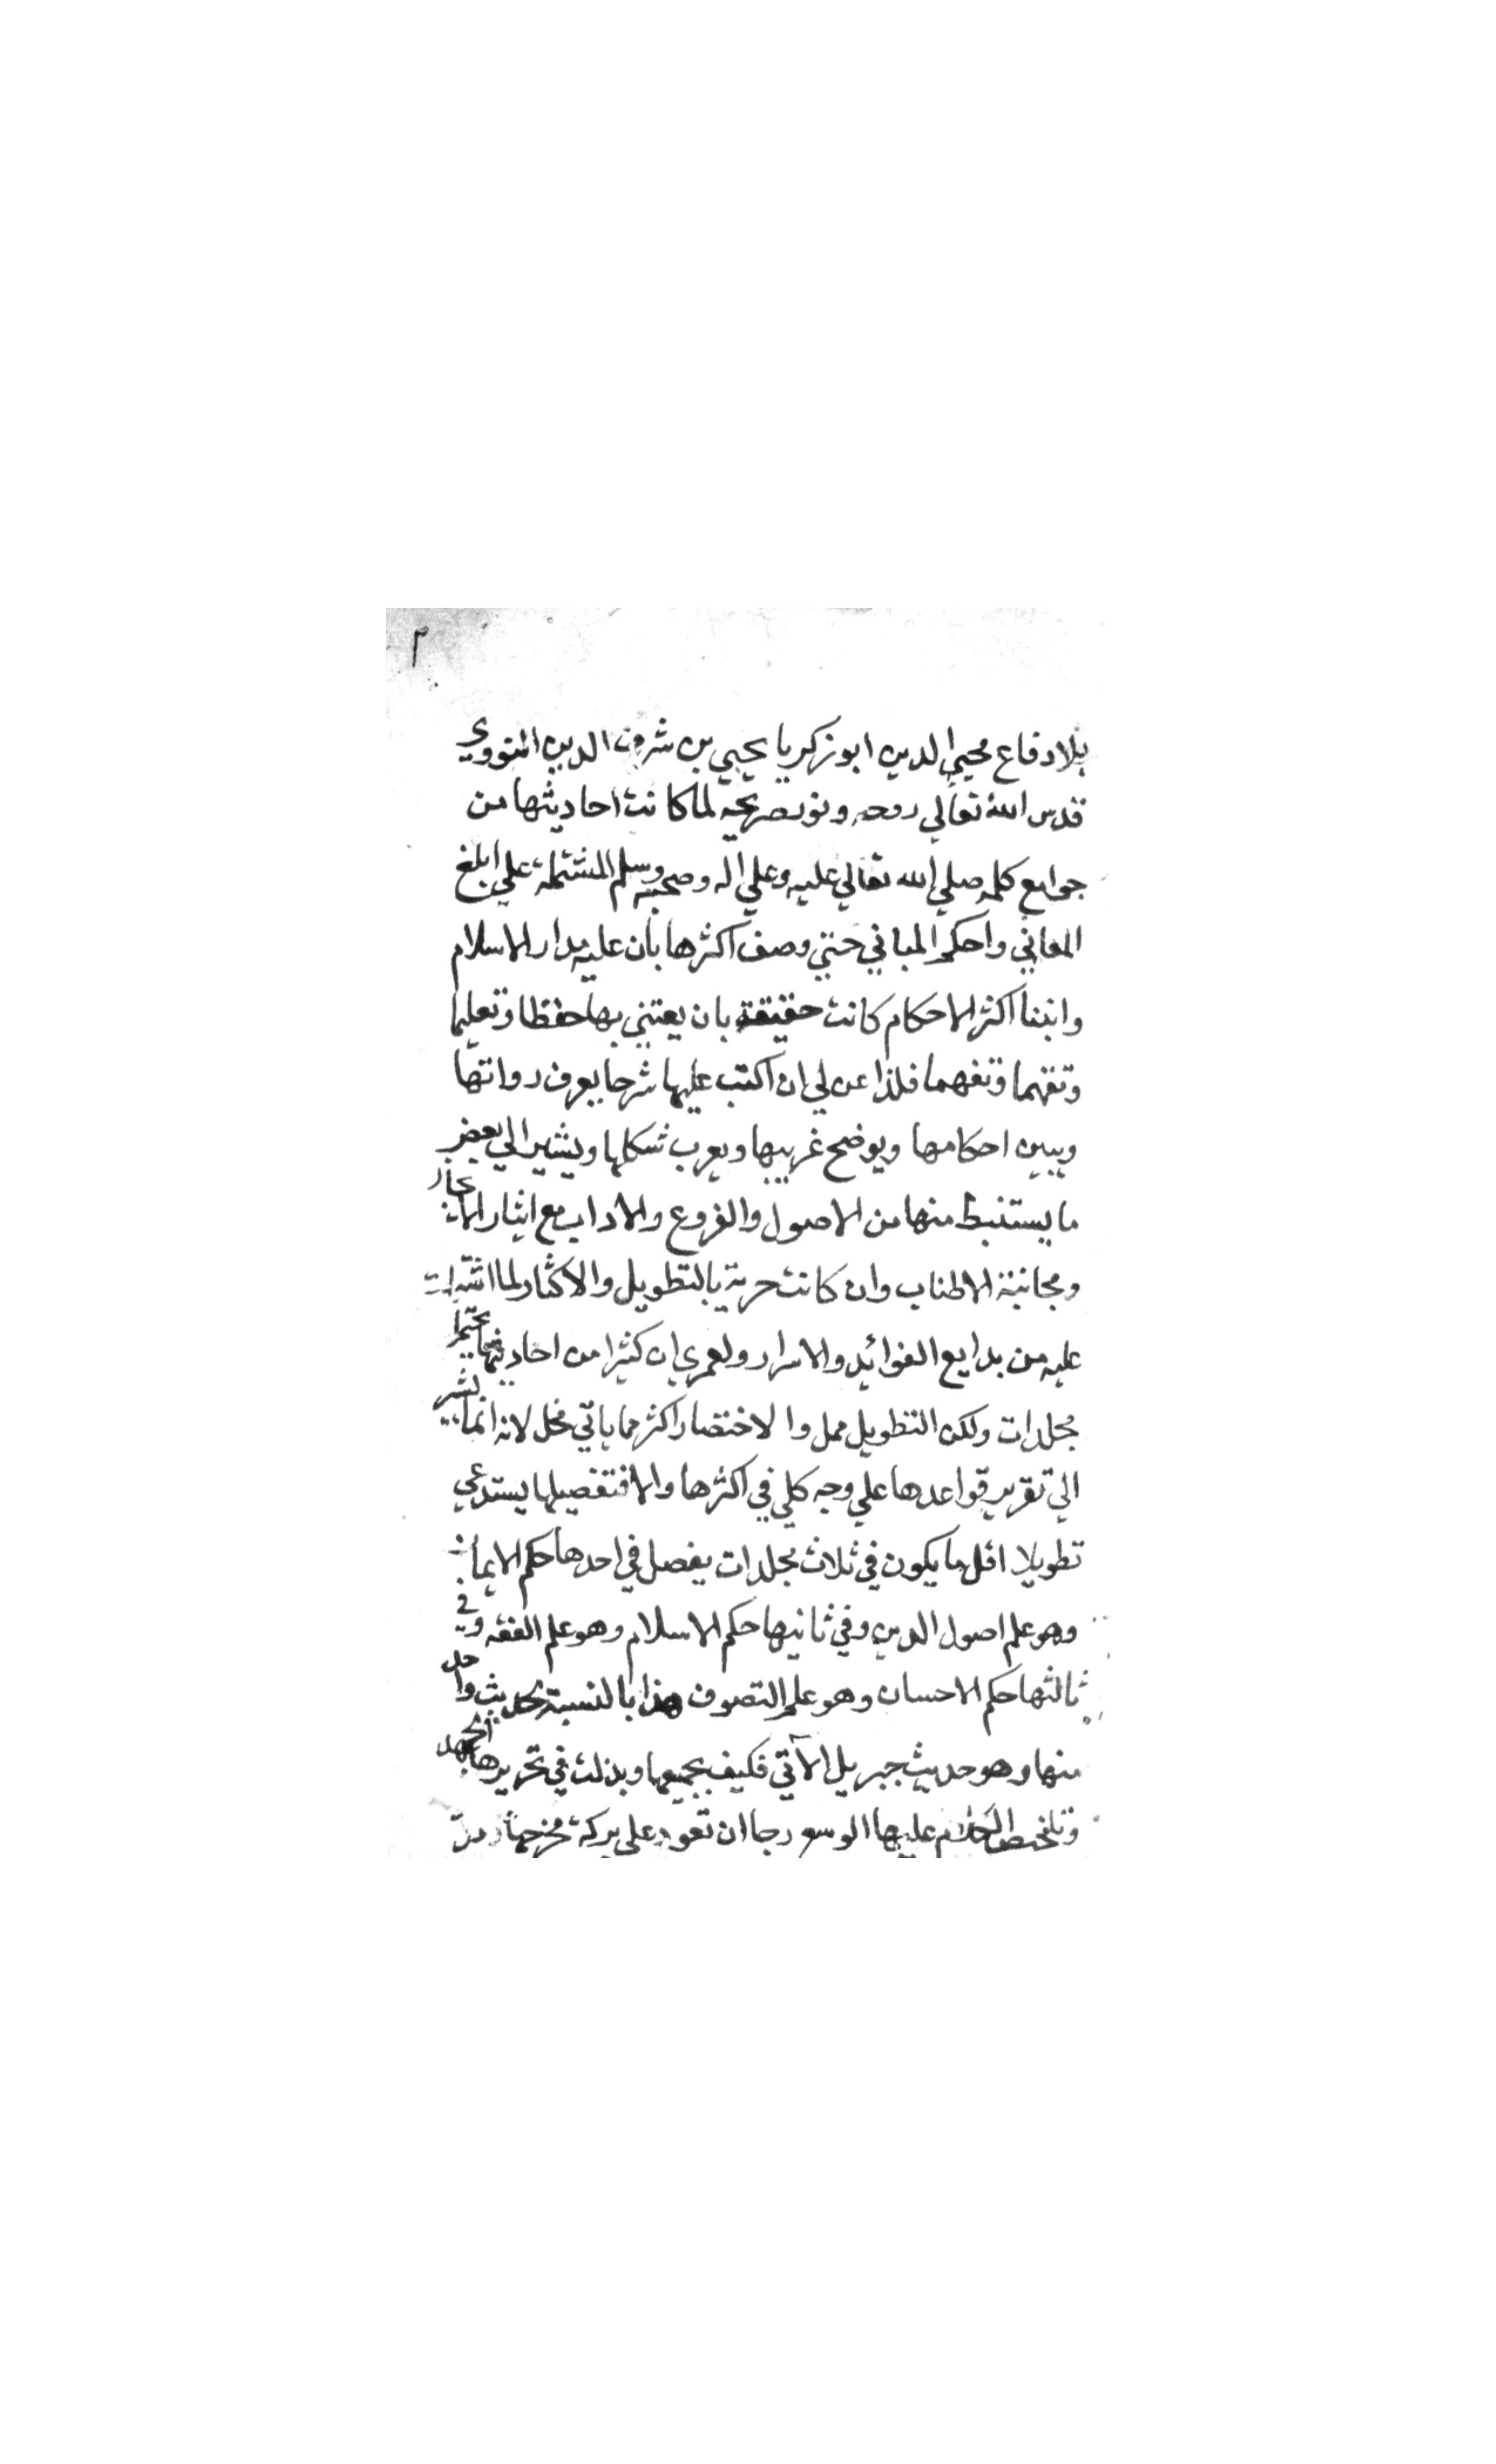 ٣
بلا دفاع محيي الدين ابو زكريا يحيي بن شرف الدين النووي
قدس الله تعالي روحه ونور ضريحه لما كانت احاديثها من
جوامع كلمه صلي الله تعالي عليه وعلي اله وصحبه وسلم المشتملة علي ابلغ
المعاني واحكم المباني حتي وصف اكثرها بأن عليه مدار الاسلام
وابتنا اكثر الاحكام كانت حقيقة بان يعتني بها حفظا وتعليما
وتفهما وتفهما فلذا عن لي ان اكتب عليها شرحا يعرف رواتها
ويبين احكامها ويوضح غريبها ويعرب شكلها ويشير الي بعض
ما يستنبط منها من الاصول والفروع والاداب مع ايثار الايجاز
ومجانبة الاطناب وان كانت حرية بالتطويل والاكثار لما اشتملت
عليه من بدايع الفوائد والاسرار ولعمري ان كثيرا من احاديثها يحتمل
مجلدات ولكن التطويل ممل والاختصار اكثر مما ياتي مخل لانه انما يشير
الي تقرير قواعدها علي وجه كلي في اكثرها والا فتفصيلها يستدعي
تطويلا اقل ما يكون في ثلاث مجلدات يفصل في احدها حكم الايمان
وهو علم اصول الدين وفي ثانيها حكم الاسلام وهو علم الفقه وفي
ثالثها حكم الاحسان وهو علم التصوف هذا بالنسبة لحديث واحد
منها وهو حديث جبريل الآتي فكيف بجميعها وبذلت في تحريرها الجهد
وتلخيص الكلام عليها الوسع رجا ان تعود علي بركة مخرجها